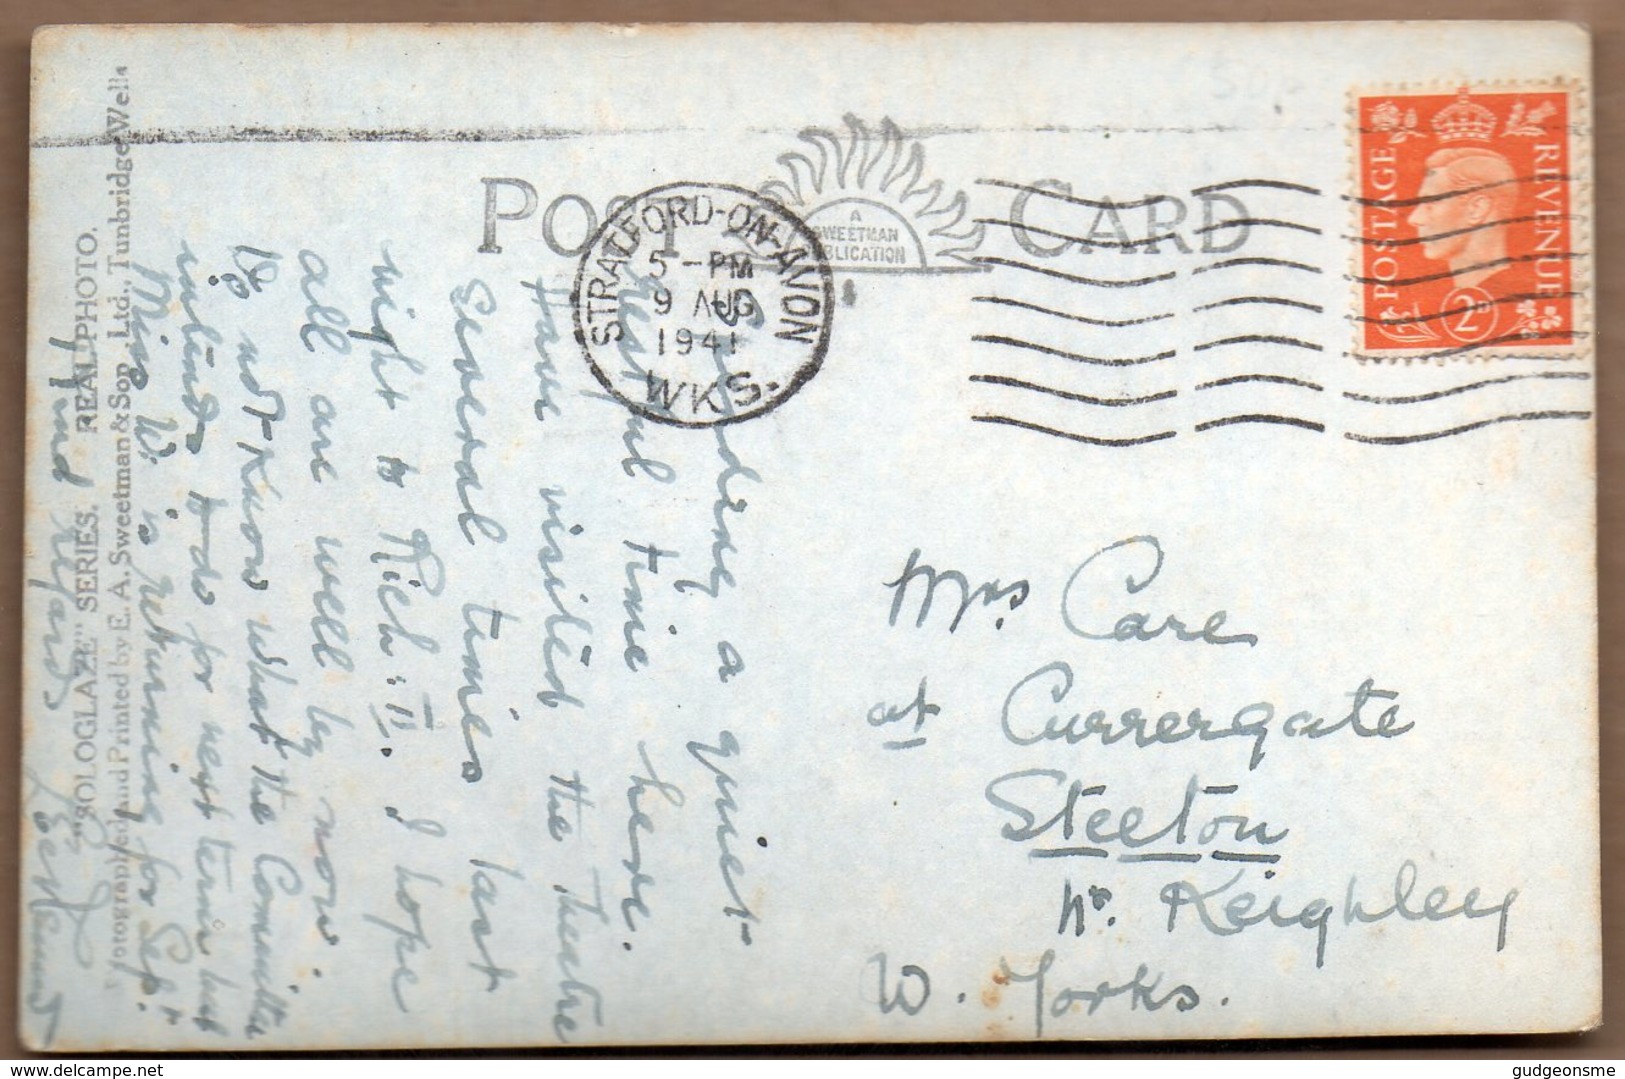 POST CARD
A
SWEETMAN
PUBLICATION
STRATFORD-ON-AVON
5 - PM
9 AUG
1941
WKS.
POSTAGE
REVENUE
2D
Mrs Care
at Currergate
Steeton
Nr. Keighley
W. Yorks.
Spending a quiet
restful time here.
Have visited the Theatre
Several times last
night to Rich: II. I hope
all are well by now.
Do not know what the Committee
intends to do for next term but
Miss W. is returning for Sept.
kind regards
"SOLOGLAZE" SERIES. REAL PHOTO.
Photographed And Printed by E. A. Sweetman & Son, Ltd., Tunbridge Wells
gudgeonsme